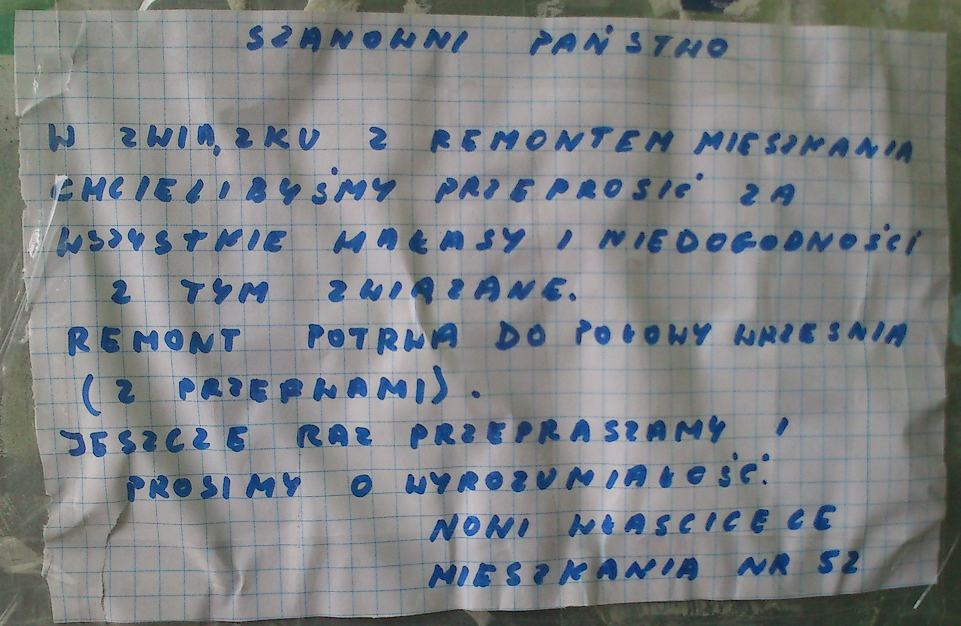 SZANOWNI PAŃSTWO
W ZWIĄZKU Z REMONTEM MIESZKANIA
CHCIELIBYŚMY PRZEPROSIĆ ZA
WSZYSTKIE HAŁASY I NIEDOGODNOŚCI
Z TYM ZWIĄZANE.
REMONT POTRWA DO POŁOWY WRZEŚNIA
(Z PRZERWAMI).
JESZCZE RAZ PRZEPRASZAMY I
PROSIMY O WYROZUMIAŁOŚĆ.
NOWI WŁAŚCICIELE
MIESZKANIA NR 52